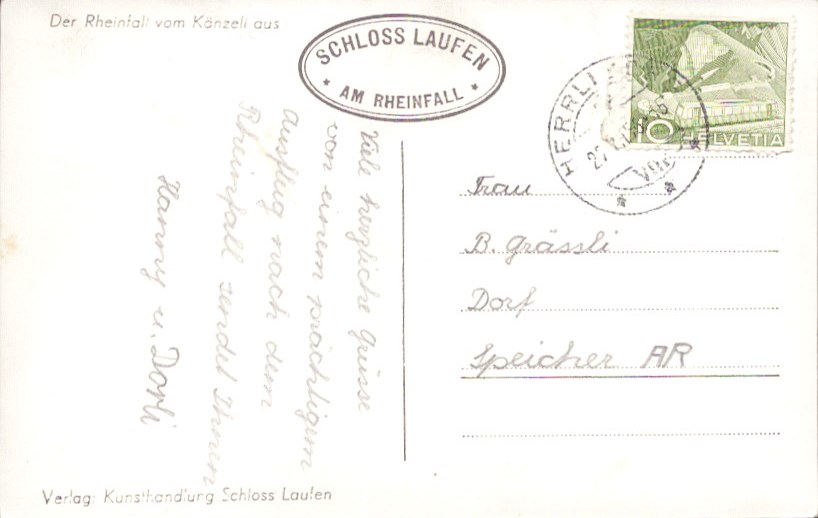 Der Rheinfall vom Känzeli aus
SCHLOSS LAUFEN
* AM RHEINFALL *
HERRLI
10 HELVETIA
Viele herzliche Grüsse
von einem prächtigem
Ausflug nach dem
Rheinfall sendet Ihnen
Hanny u. Dorli
Frau
B. Grässli
Dorf
Speicher AR
Verlag: Kunsthandlung Schloss Laufen